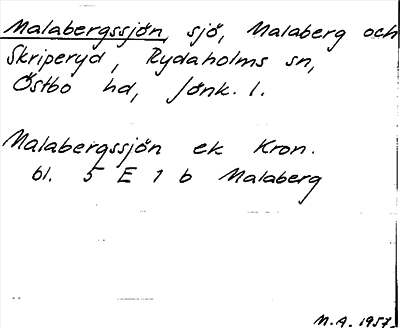 Malabergssjön, sjö, Malaberg och
Skriperyd, Rydaholms sn,
Östbo hd, Jönk. l.
Malabergssjön ek Kron.
bl. 5 E 1 b Malaberg
M.A. 1957.